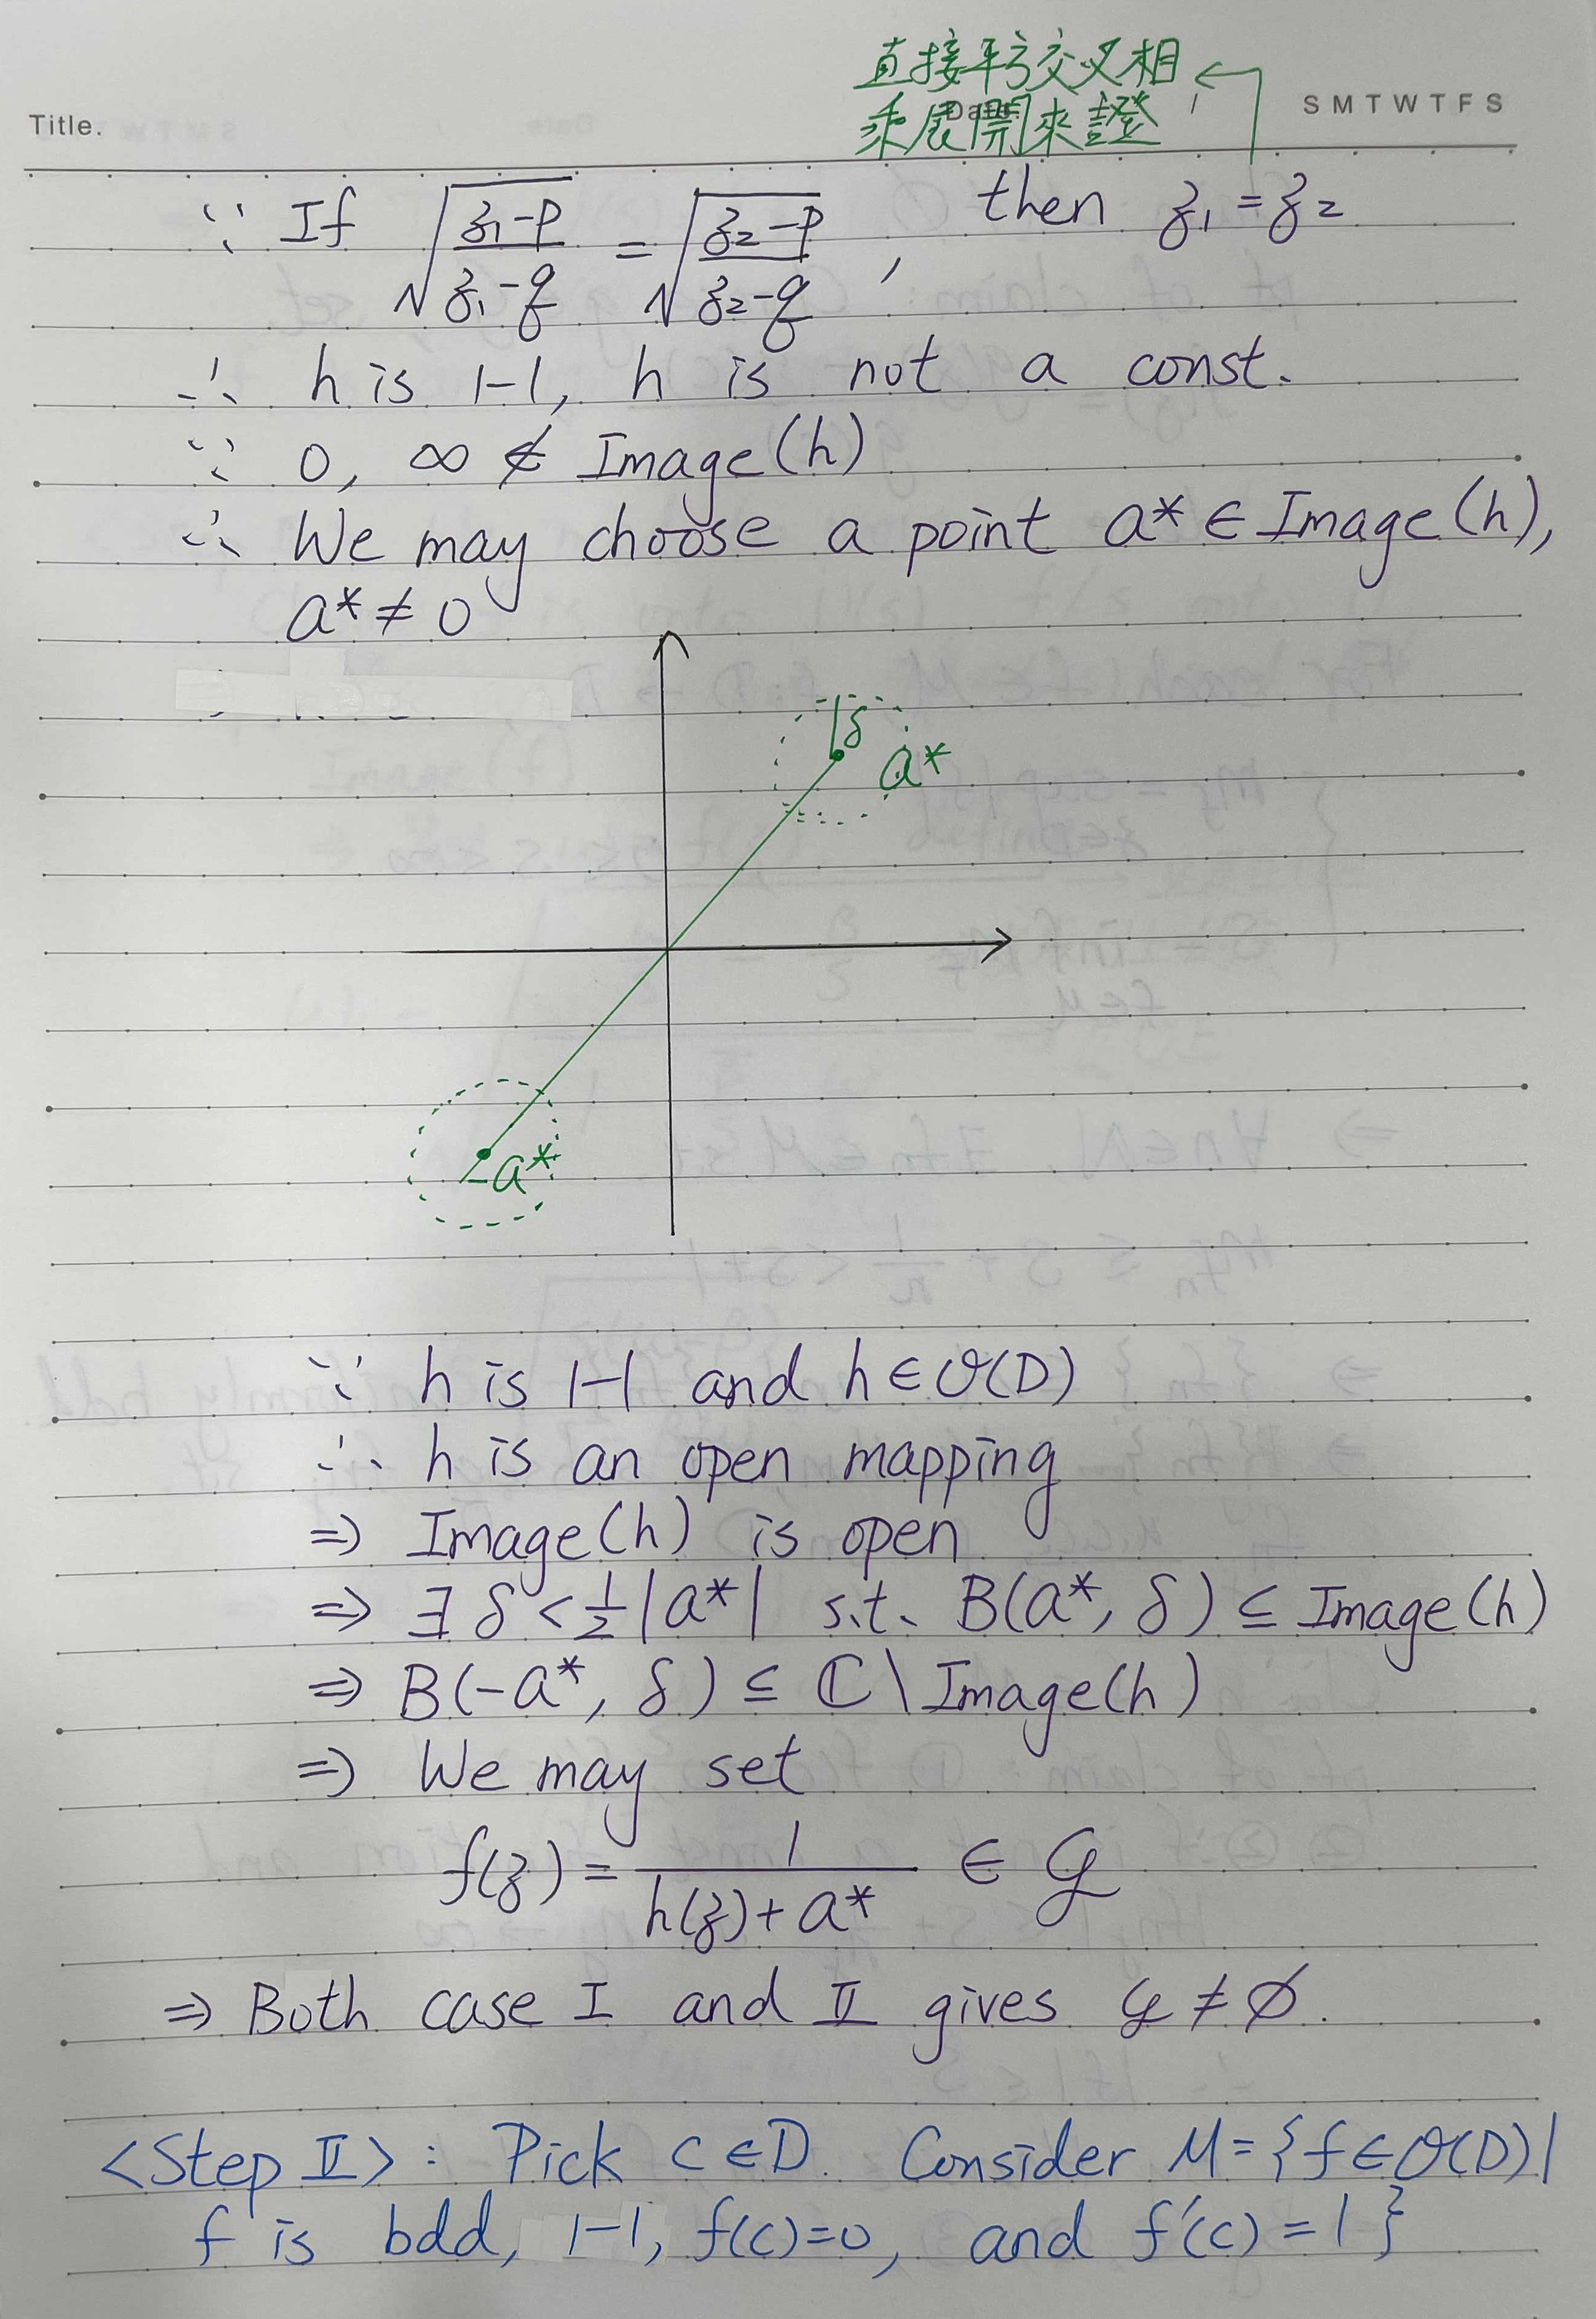 直接平方交叉相
乘展開來證
Title.
Date.
/
S M T W T F S
∵ If √((z₁-p)/(z₁-q)) = √((z₂-p)/(z₂-q)), then z₁ = z₂
∴ h is 1-1, h is not a const.
∵ 0, ∞ ∉ Image(h)
∴ We may choose a point a* ∈ Image(h),
a* ≠ 0
δ
a*
-a*
∵ h is 1-1 and h ∈ O(D)
∴ h is an open mapping
⇒ Image(h) is open
⇒ ∃ δ < ½|a*| s.t. B(a*, δ) ⊆ Image(h)
⇒ B(-a*, δ) ⊆ ℂ \ Image(h)
⇒ We may set
f(z) = 1/(h(z) + a*) ∈ 𝒢
⇒ Both case I and II gives 𝒢 ≠ ∅.
<Step II>: Pick c ∈ D. Consider M = {f ∈ O(D) |
f is bdd, 1-1, f(c)=0, and f'(c) = 1}